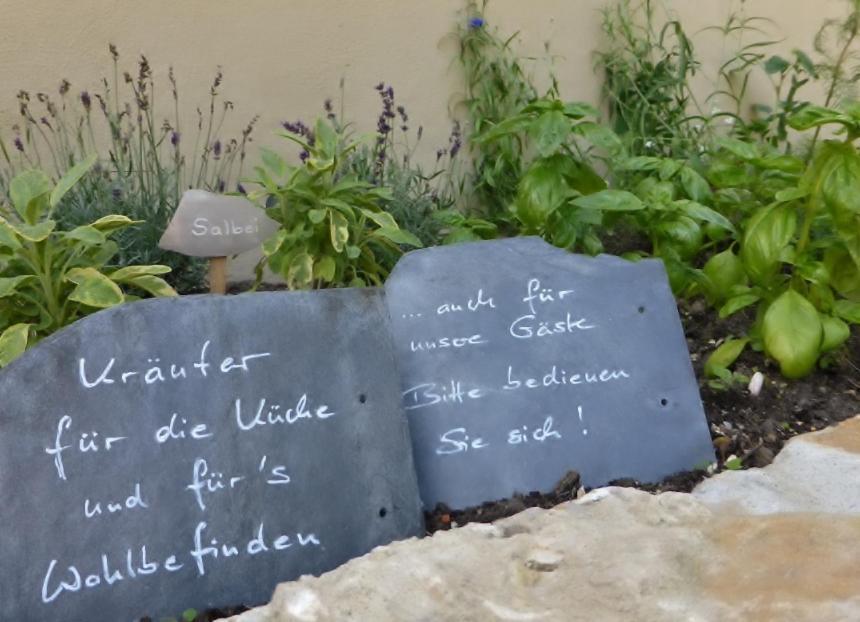 Salbei
Kräuter
für die Küche
und für's
Wohlbefinden
... auch für
unsre Gäste
Bitte bedienen
Sie sich!